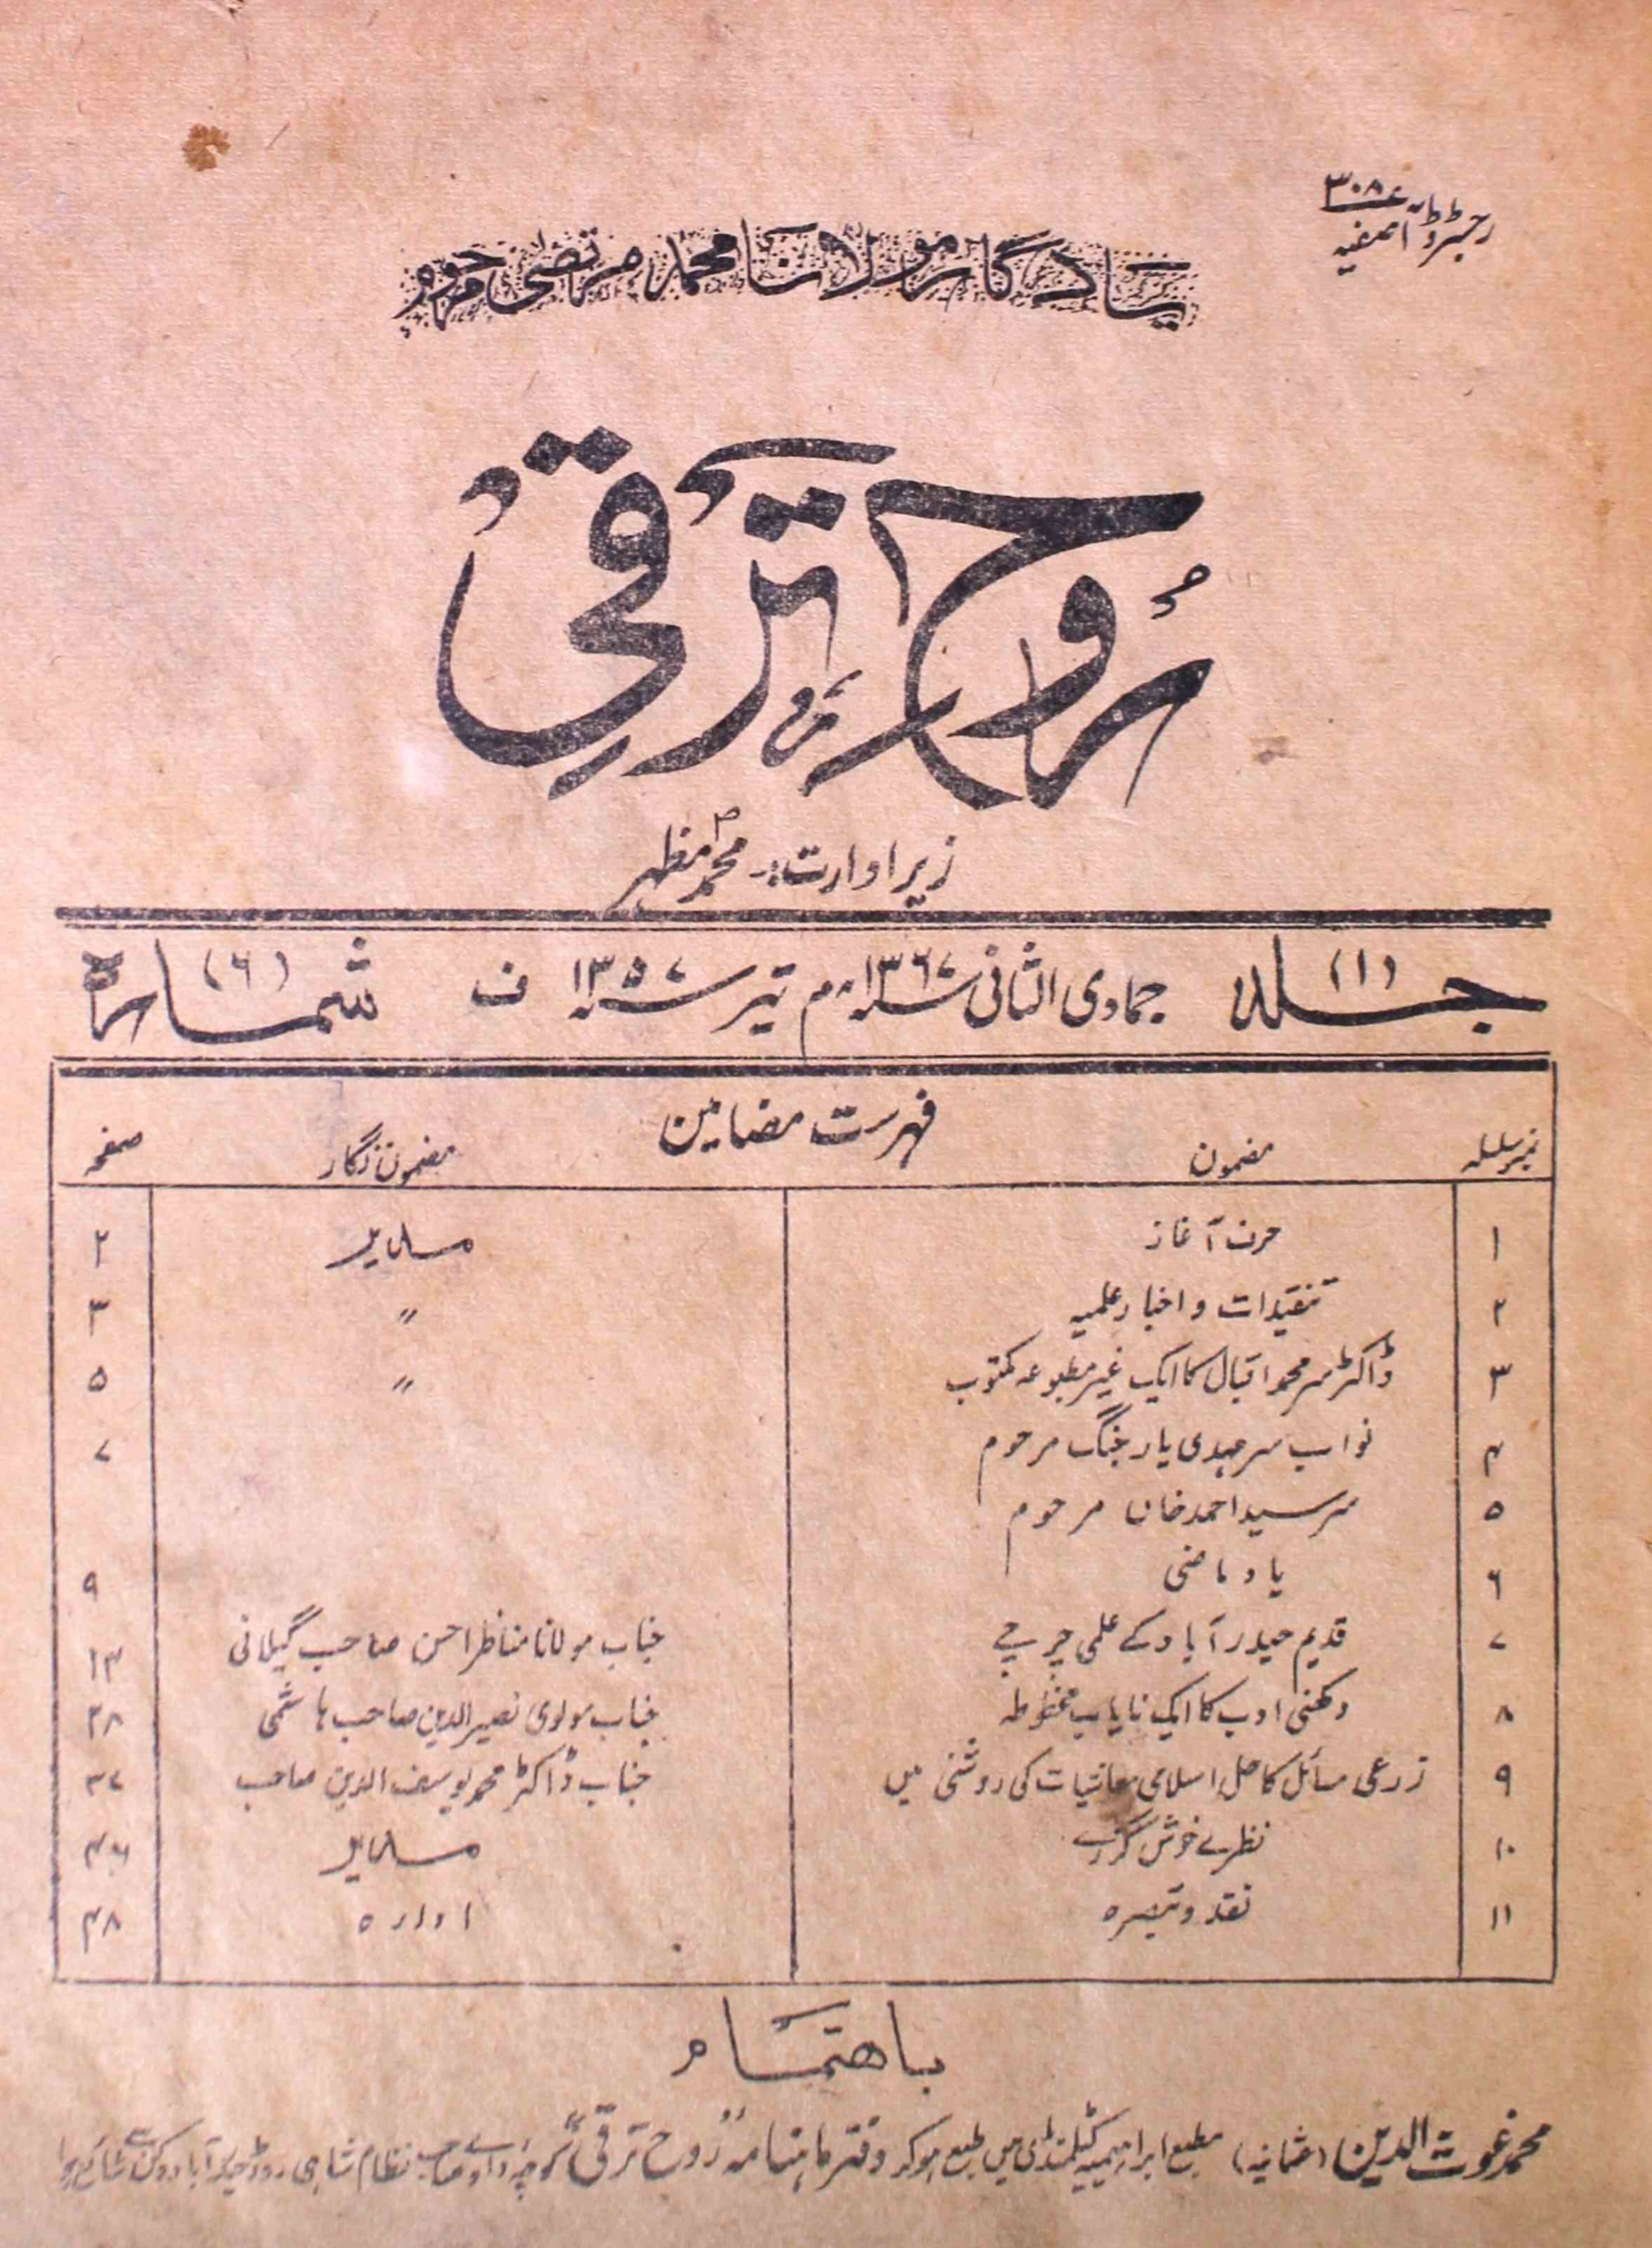 رجسٹرڈ آصفیہ ۳۰۸
یادگار مولانا محمد مرتضیٰ مرحوم
رُوحِ ترقی
زیر ادارت:۔ محمد مظہر
جلد (۱) جمادی الثانی ۱۳۶۷ھ م تیر ۱۳۵۷ ف شمارہ (۶)
فہرست مضامین
نمبر سلسلہ مضمون مضمون نگار صفحہ
۱ حرف آغاز مدیر ۲
۲ تنقیدات و اخبار علمیہ " ۳
۳ ڈاکٹر سر محمد اقبال کا ایک غیر مطبوعہ مکتوب " ۵
۴ نواب سر مہدی یار جنگ مرحوم ۷
۵ سر سید احمد خان مرحوم
۶ یاد ماضی ۹
۷ قدیم حیدرآباد کے علمی چرچے جناب مولانا مناظر احسن صاحب گیلانی ۱۳
۸ دکھنی ادب کا ایک نایاب مخطوطہ جناب مولوی نصیر الدین صاحب ہاشمی ۲۸
۹ زرعی مسائل کا حل اسلامی معاشیات کی روشنی میں جناب ڈاکٹر محمد یوسف الدین صاحب ۳۷
۱۰ نظرے خوش گزرے مدیر ۴۶
۱۱ نقد و تبصرہ ادارہ ۴۸
باہتمام
محمد غوث الدین (عثمانیہ) مطبع ابراہیمیہ میں طبع ہوکر دفتر ماہنامہ "رُوح ترقی" کوچہ نظام شاہی روڈ حیدرآباد دکن سے شائع ہوا